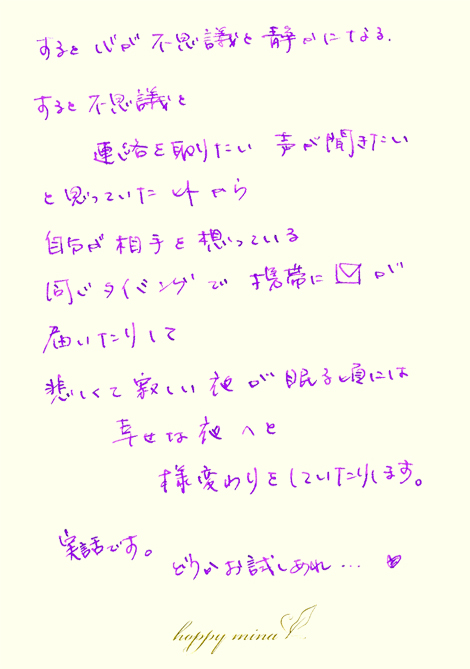 すると 心が 不思議と 静かになる.
すると 不思議と
連絡を取りたい 声が聞きたい
と思っていた 人から
自分が 相手を 想っている
同じタイミングで 携帯に✉が
届いたりして
悲しくて寂しい夜が眠る頃には
幸せな夜へと
様変わりをしていたりします。
実話です。
どうかお試しあれ… ♥
happy mina